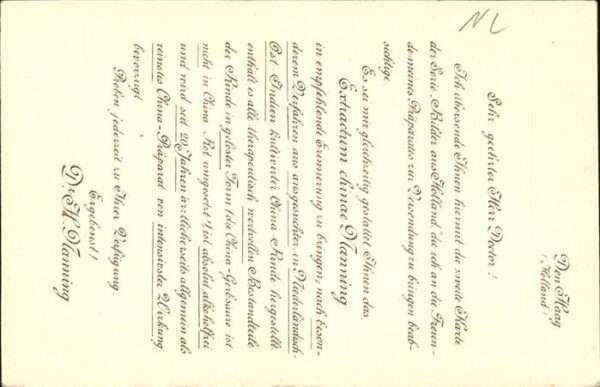 NL
Den Haag
(Holland)
Sehr geehrter Herr Doctor!
Ich übersende Ihnen hiermit die zweite Karte
der Serie „Bilder aus Holland“ die ich an die Freun-
de meines Präparates zur Versendung zu bringen beab-
sichtige.
Es sei mir gleichzeitig gestattet Ihnen das
Extractum chinae Nanning
in empfehlende Erinnerung zu bringen, nach beson-
derem Verfahren aus ausgesuchter in Niederländisch-
Ost-Indien kultivierter China-Rinde hergestellt
enthält es alle therapeutisch wertvollen Bestandteile
der Rinde in gelöster Form (die China-Gerbsäure ist
nicht in China-Rot umgesetzt) ist absolut alkoholfrei
und wird seit 20 Jahren ärztlicherseits allgemein als
reinstes China-Präparat von intensivster Wirkung
bevorzugt.
Proben jederzeit zu Ihrer Verfügung.
Ergebenst!
Dr. H. Nanning